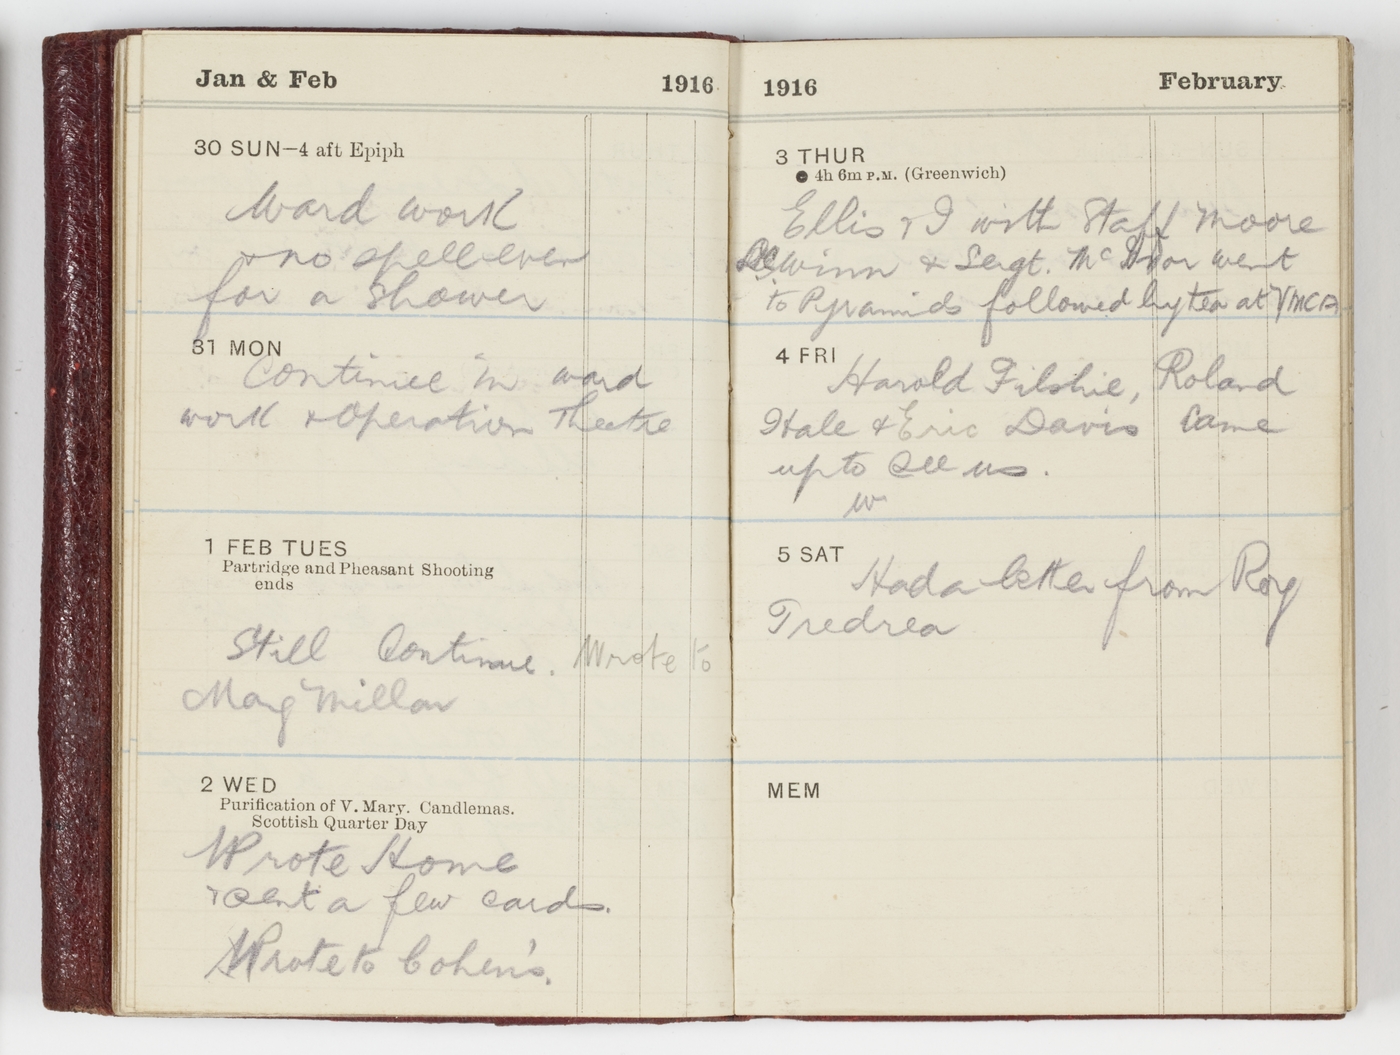 Jan & Feb 1916
30 SUN—4 aft Epiph
Ward work
& no spell even
for a shower
31 MON
Continue in ward
work & Operation Theatre
1 FEB TUES
Partridge and Pheasant Shooting
ends
Still Continue. Wrote to
Marg Millar
2 WED
Purification of V. Mary. Candlemas.
Scottish Quarter Day
Wrote Home
& sent a few cards.
Wrote to Cohen's.
1916 February
3 THUR
● 4h 6m P.M. (Greenwich)
Ellis & I with Staff Moore
winn & Sergt. went
to Pyramids followed by tea at YMCA
4 FRI
Harold Filshie, Roland
Hale & Eric Davis came
up to see us.
w
5 SAT
Had a letter from Roy
Tredrea
MEM